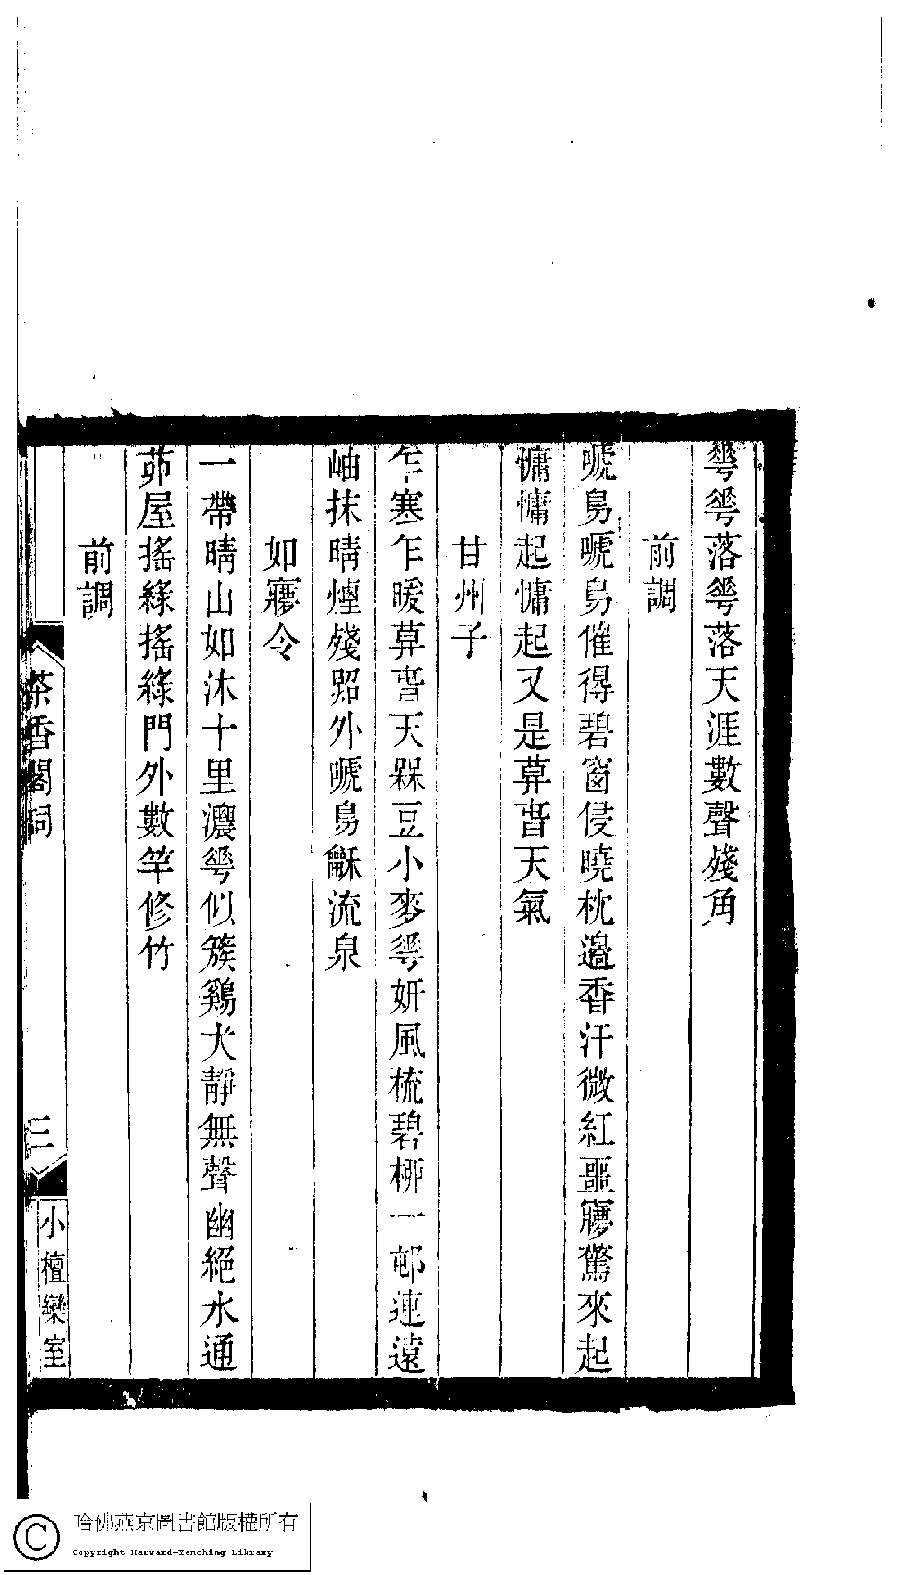 𠌶𠌶落𠌶落天涯數聲殘角
前調
嗁鳥嗁鳥催得碧窗侵曉枕邊香汗微紅噩㝱驚來起
慵慵起慵起又是𦱤旾天氣
甘州子
乍寒乍暖𦱤旾天槑豆小麥𠌶妍風梳碧桺一邨連遠
岫抹晴煙殘照外嗁鳥龢流泉
如㝱令
一帶晴山如沐十里濃𠌶似簇鷄犬靜無聲幽絕水通
茆屋搖綠搖綠門外數竿修竹
前調
茶香閣詞
三
小檀欒室
哈佛燕京圖書館版權所有
Copyright Harvard-Yenching Library